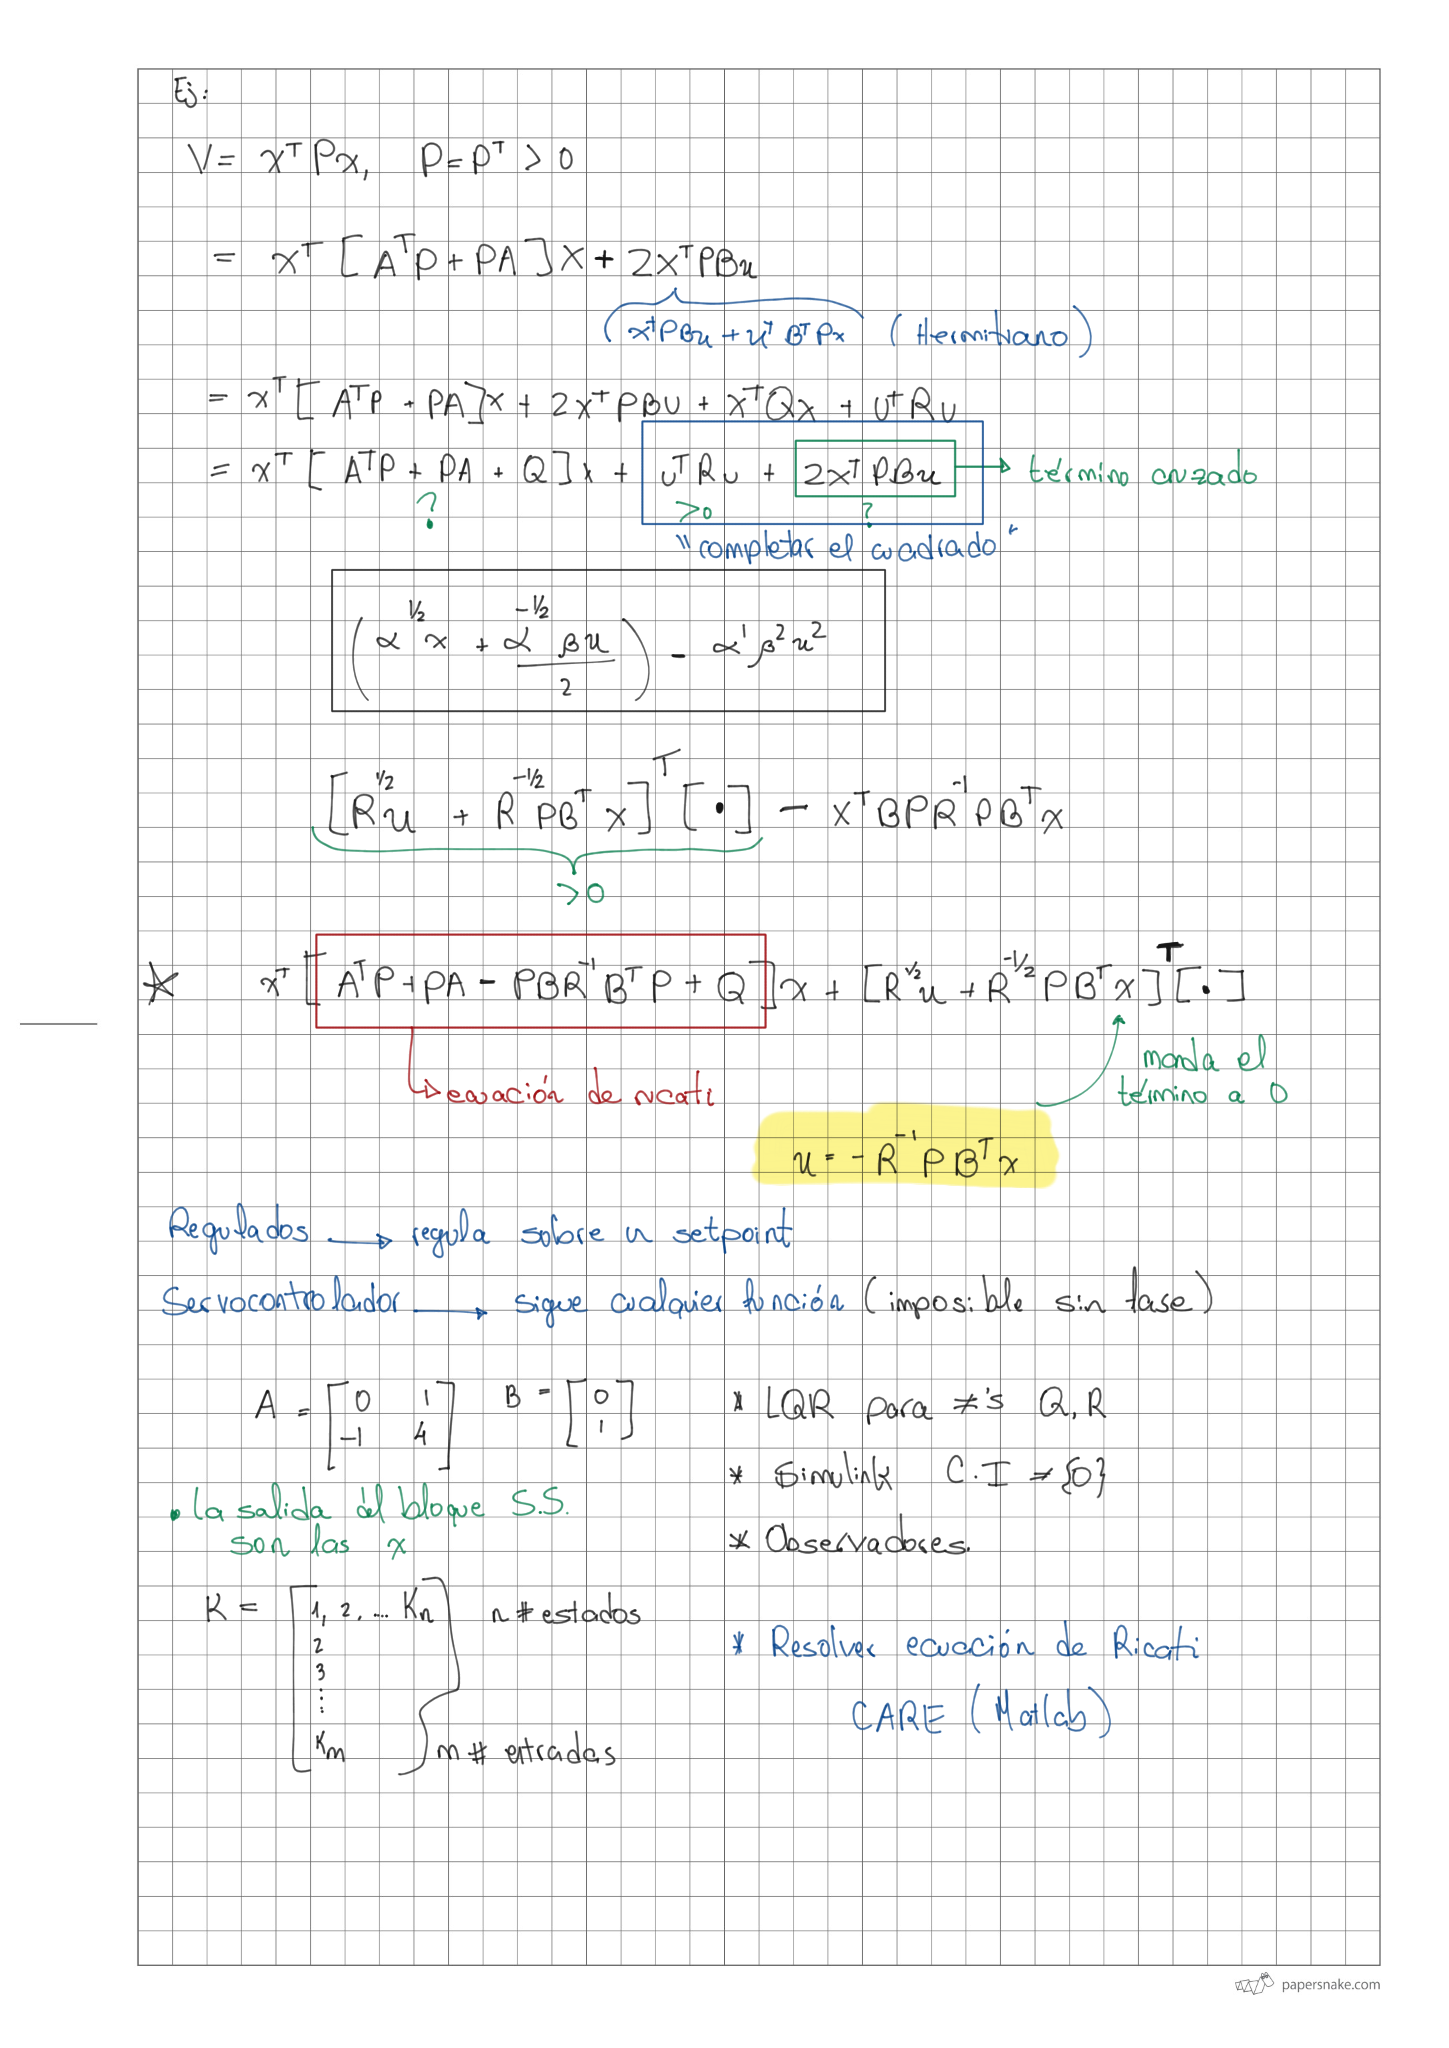 Ej:
V = xᵀPx, P = Pᵀ > 0
= xᵀ [AᵀP + PA] x + 2xᵀPBu
(xᵀPBu + uᵀBᵀPx (Hermitiano)
= xᵀ [AᵀP + PA] x + 2xᵀPBu + xᵀQx + uᵀRu
= xᵀ [AᵀP + PA + Q] x + uᵀRu + 2xᵀPBu → término cruzado
? >0 ?
"completar el cuadrado"
(α^½ x + α^-½ βu / 2) - α¹β²u²
[R^½ u + R^-½ PBᵀx]ᵀ [•] - xᵀBPR⁻¹PBᵀx
>0
* xᵀ [AᵀP + PA - PBR⁻¹BᵀP + Q] x + [R^½ u + R^-½ PBᵀx]ᵀ [•]
ecuación de ricati
manda el
término a 0
u = -R⁻¹PBᵀx
Regulados → regula sobre un setpoint
Servocontrolador → sigue cualquier función (imposible sin fase)
A = [0 1
-1 4]
B = [0
1]
• la salida del bloque S.S.
son las x
K = [1, 2, ... Kn] n # estados
2
3
⋮
Km m # entradas
* LQR para ≠'s Q, R
* Simulink C.I ≠ {0}
* Observadores.
* Resolver ecuación de Ricati
CARE (Matlab)
papersnake.com